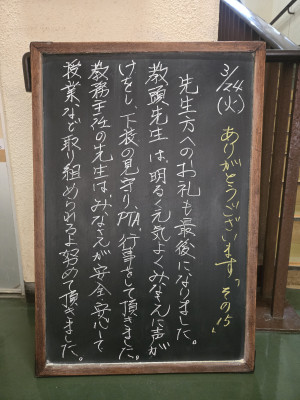 3/24(火) ありがとうございます「その15」
先生方へのお礼も最後になりました。
教頭先生は、明るく元気よくみなさんに声が
けをし、下校の見守り、PTA行事をして頂きました。
教務主任の先生はみなさんが安全・安心して
授業など取り組められるよう努めて頂きました。